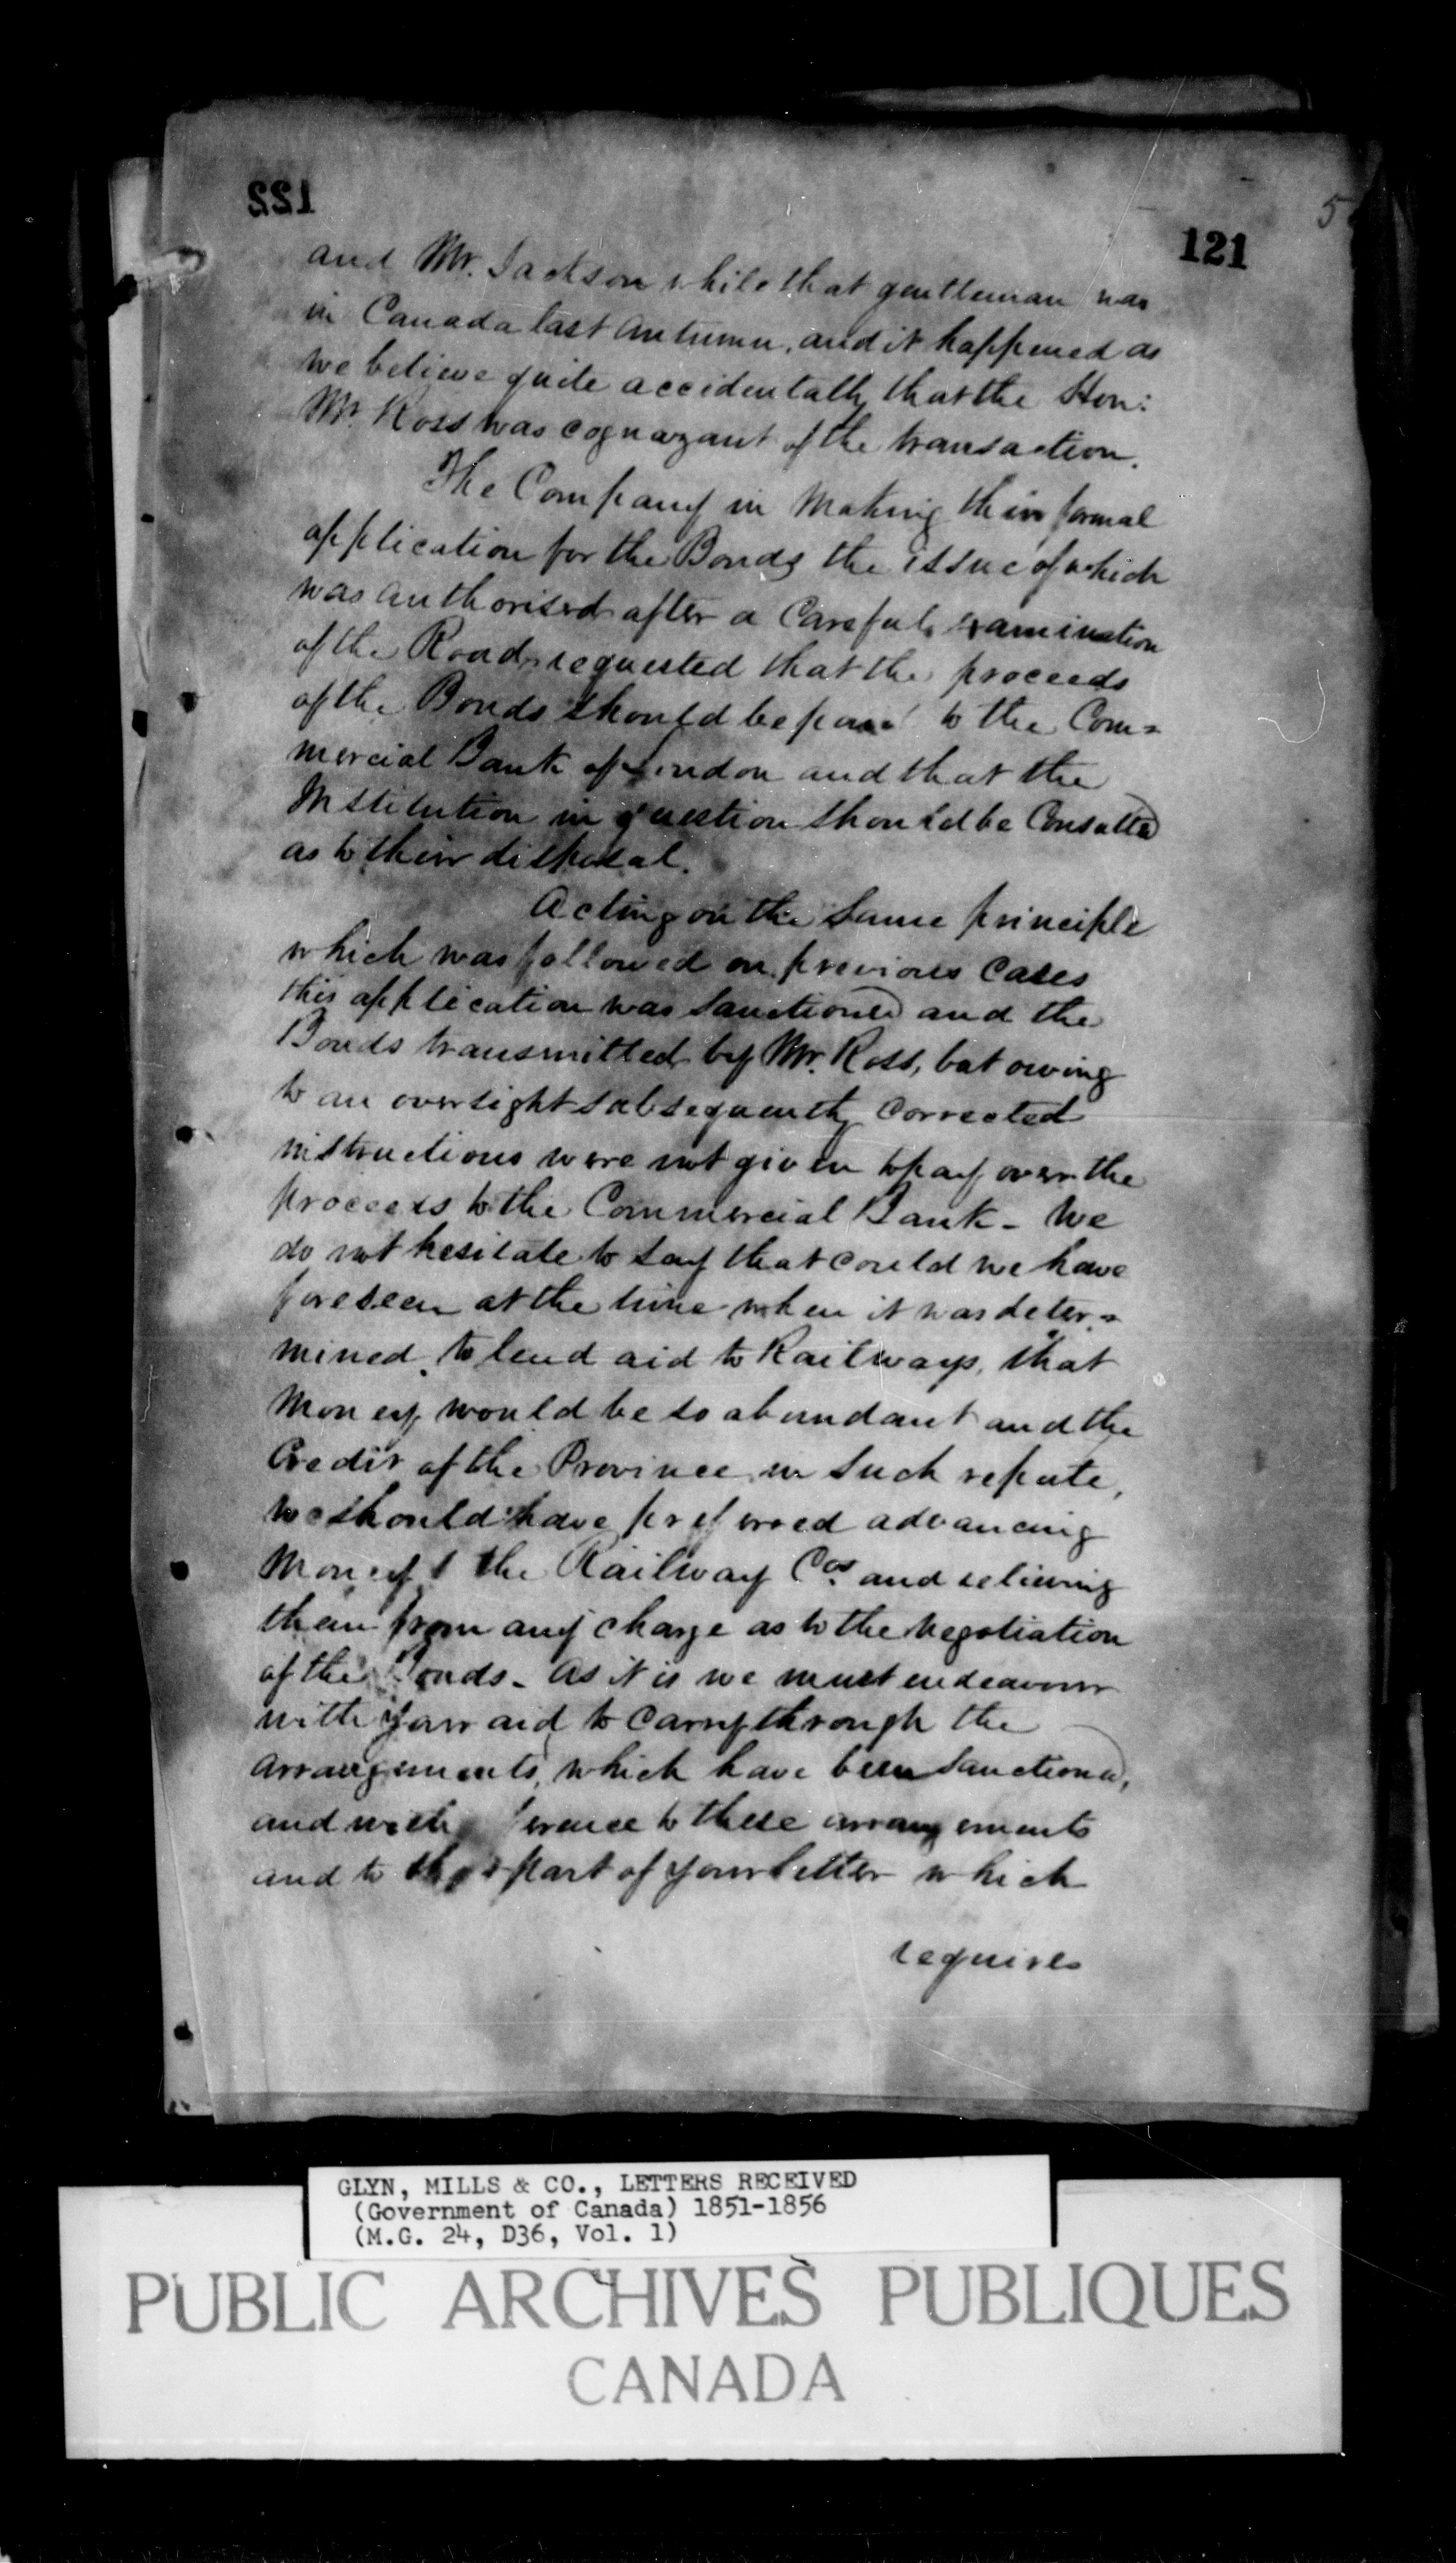 122
5
121
and Mr. Jackson while that gentleman was
in Canada last Autumn, and it happened as
we believe quite accidentally that the Hon:
Mr. Ross was cognazant of the transaction.
The Company in Making their formal
application for the Bonds the issue of which
was authorised after a Careful examination
of the Road requested that the proceeds
of the Bonds should be paid to the Com=
mercial Bank of London and that the
Institution in question should be Consulted
as to their disposal.
Acting on the same principle
which was followed on previous Cases
this application was sanctioned and the
Bonds transmitted by Mr. Ross, but owing
to an oversight subsequently corrected
instructions were not given to pay over the
proceeds to the Commercial Bank - We
do not hesitate to say that could we have
foreseen at the time when it was deter=
mined to lend aid to Railways, that
Money would be so abundant and the
Credit of the Province in such repute,
we should have preferred advancing
Money to the Railway Cos. and relieving
them from any charge as to the Negotiation
of the Bonds - As it is we must endeavour
with your aid to Carry through the
arrangements, which have been Sanctioned,
and with erence to these arrangements
and to that part of your letter which
requires
GLYN, MILLS & CO., LETTERS RECEIVED
(Government of Canada) 1851-1856
(M.G. 24, D36, Vol. 1)
PUBLIC ARCHIVES PUBLIQUES
CANADA